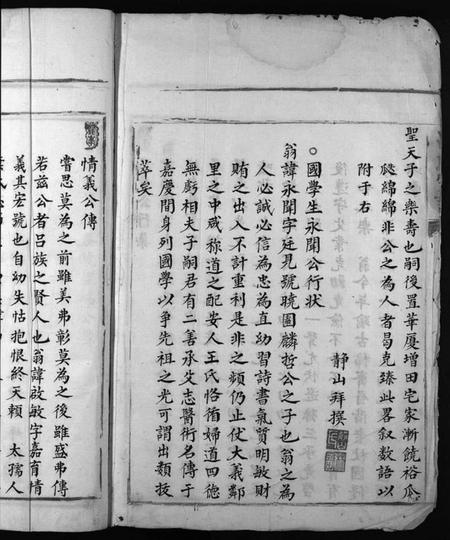 聖天子之樂壽也嗣後置華厦增田宅家漸饒裕瓜
瓞綿綿非公之為人者曷克臻此畧叙数語以
附于右
靜山拜撰
○國學生永開公行狀
翁諱永開字廷見號曉園麟哲公之子也翁之為
人必誠必信為忠為直幼習詩書氣質明敏財
賄之出入不計重利是非之頻仍止仗大義鄰
里之中咸称道之配安人王氏恪循婦道四德
無虧相夫子嗣君有二善承父志醫術名傳于
嘉慶間身列國學以爭先祖之光可謂出類技
萃矣
情義公傳
嘗思莫為之前雖美弗彰莫為之後雖盛弗傳
若兹公者吕族之賢人也翁諱啟敏字嘉育情
義其宏號也自幼失怙抱恨終天頼 太孺人